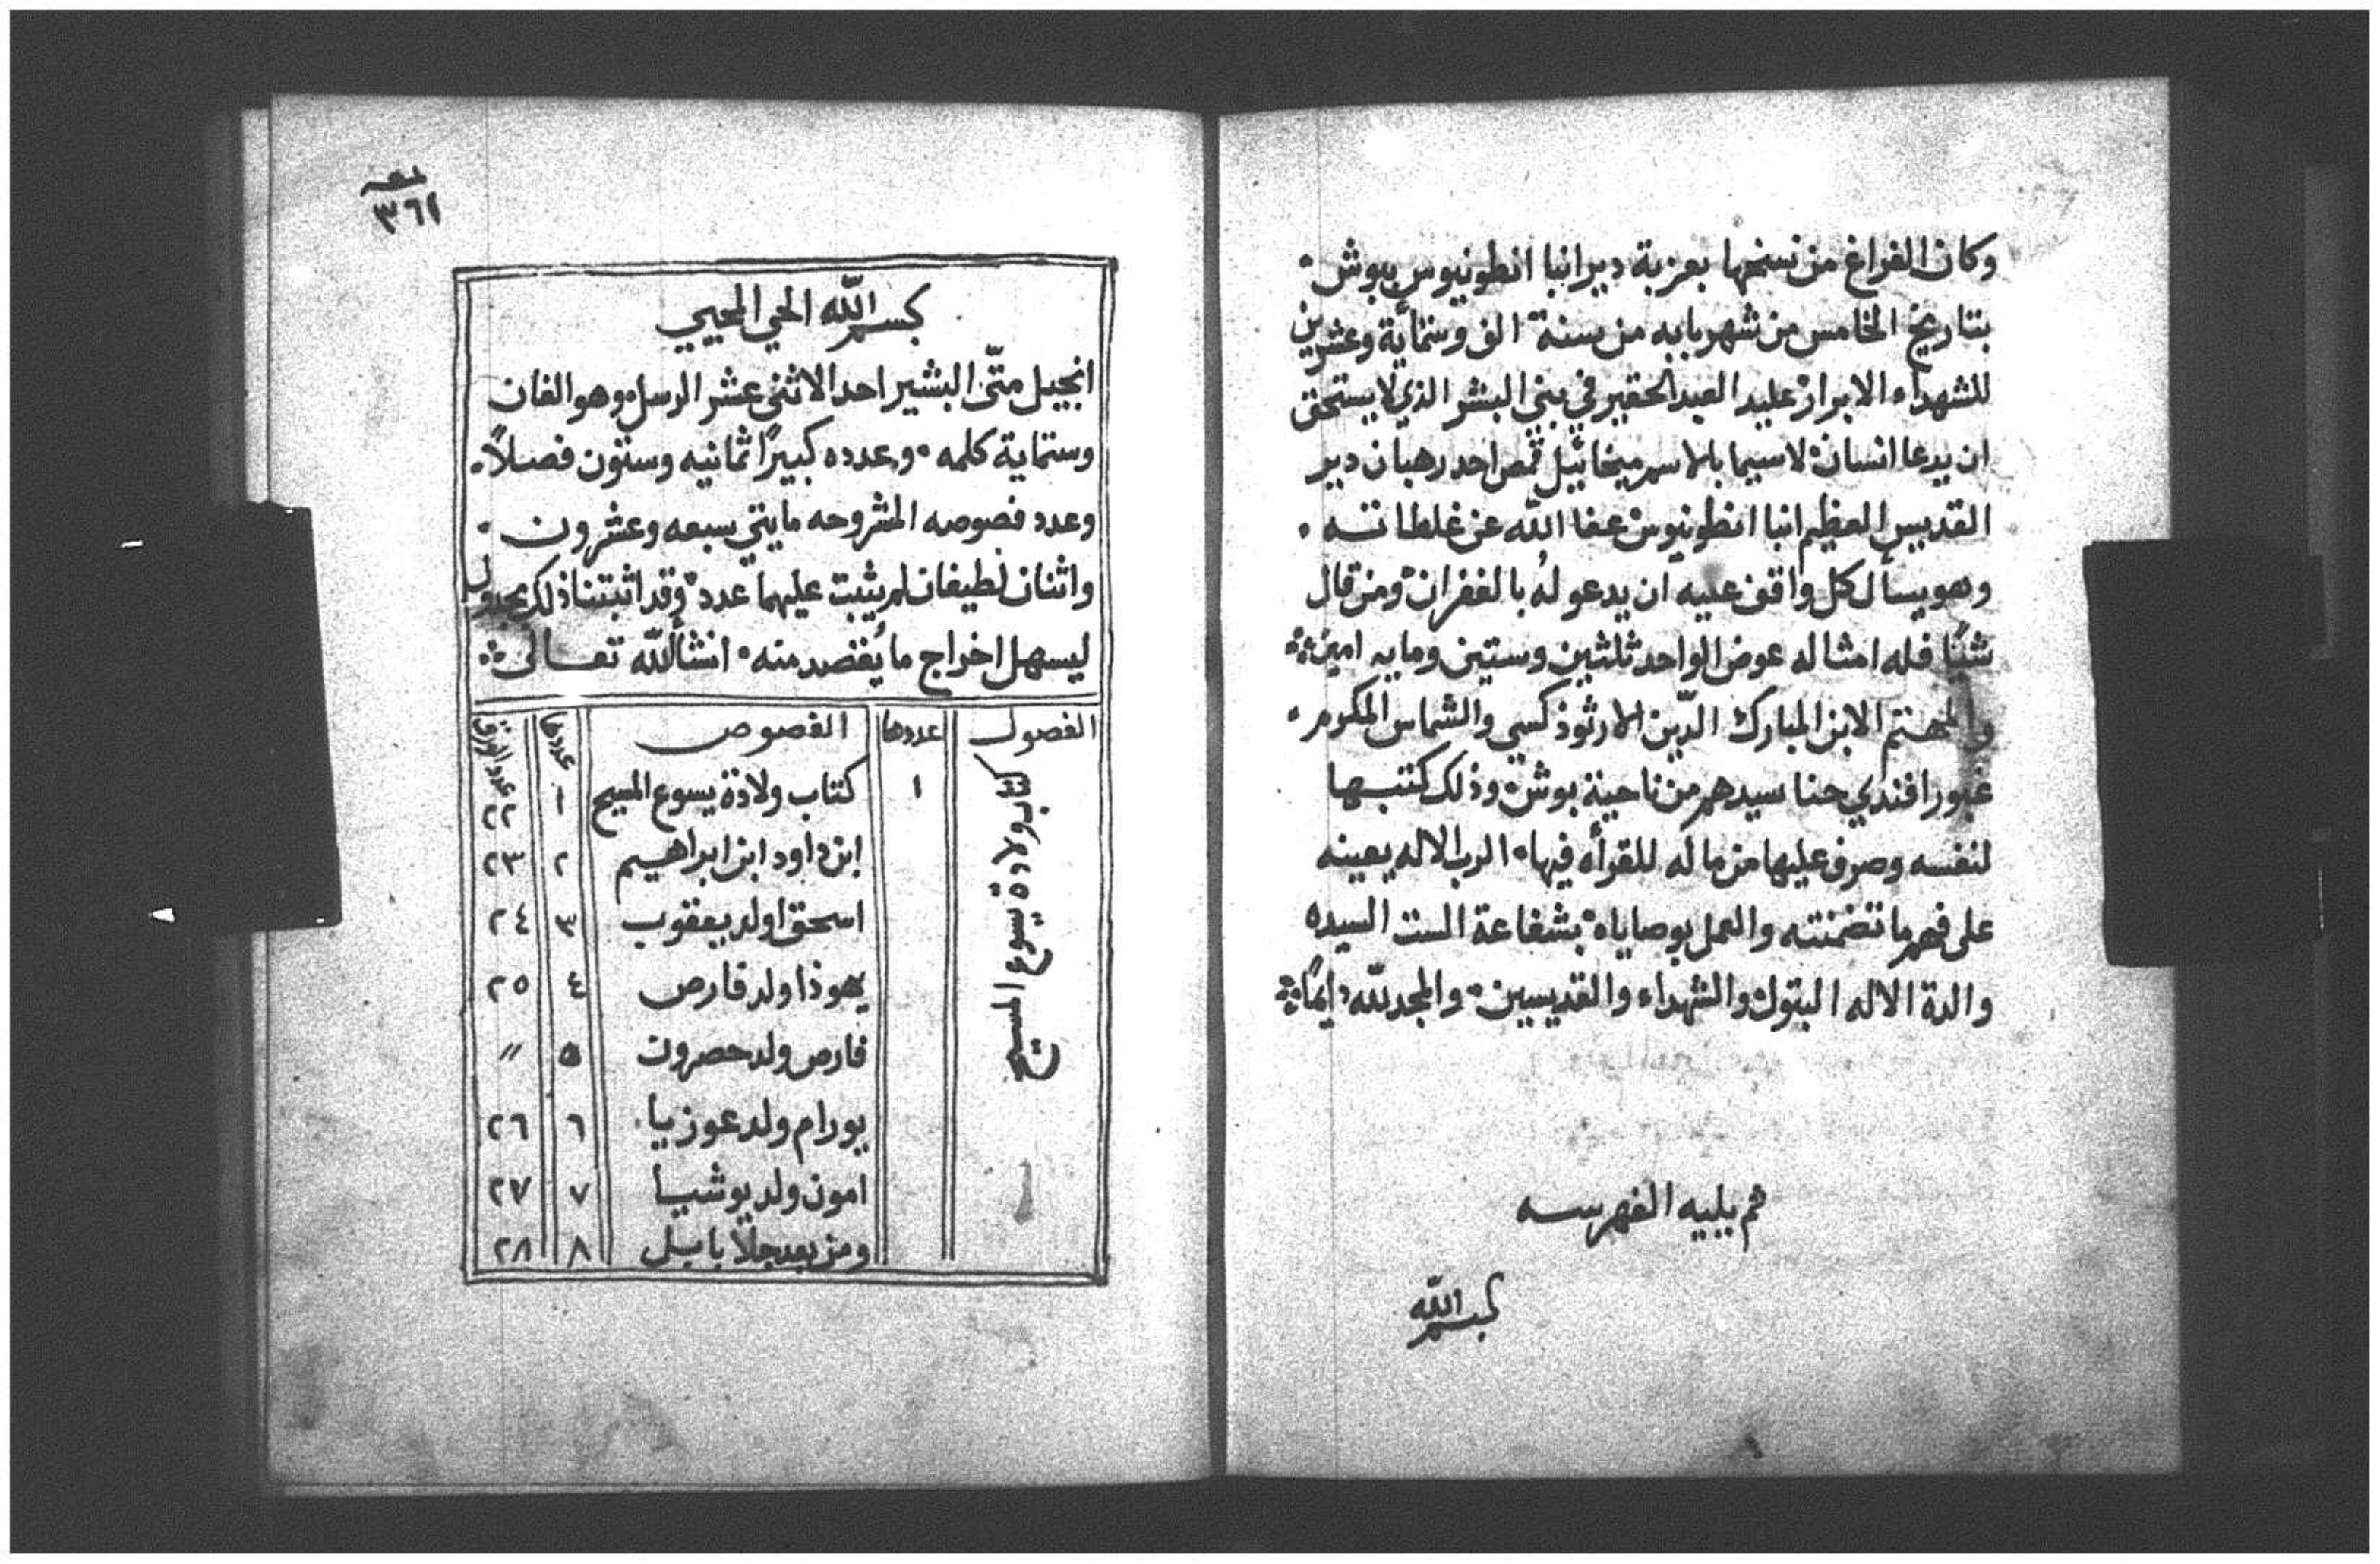 وكان الفراغ من نسخها بعزبة دير انبا انطونيوس ببوش
بتاريخ الخامس من شهر بابه من سنة الف وستمأية وعشرين
للشهداء الابرار عليد العبد الحقير في بني البشر الذي لا يستحق
ان يدعا انسان لاسيما بالاسم ميخائيل قمص احد رهبان دير
القديس العظيم انبا انطونيوس عفا الله عن غلطاته
وهو يسأل كل واقف عليه ان يدعو لهُ بالغفران ومن قال
شيًا فله امثاله عوض الواحد ثلثين وستين ومايه امين
والمهتم الابن المبارك الدّين الارثوذكسي والشماس المكرم
غبور افندي حنا سيدهم من ناحية بوش وذلك كتبها
لنفسه وصرف عليها من ماله للقرأه فيها الرب الاله يعينه
على فهم ما تضمنته والعمل بوصاياه بشفاعة الست السيده
والدة الاله البتول والشهداء والقديسين والمجد لله دايمًا
ثم يليه الفهرسه
بسم الله
٣٦١
بسم الله الحي المحيي
انجيل متّى البشير احد الاثنى عشر الرسل وهو الفان
وستماية كلمه وعدده كبيرًا ثمانيه وستون فصلاً
وعدد فصوصه المشروحه مايتي سبعه وعشرون
واثنان لطيفان لم يثبت عليهما عدد وقد اثبتنا ذلك بجدول
ليسهل اخراج ما يُقصد منه انشألله تعالى
الفصول عددها الفصوص عددها عدد الورق
كتاب ولادة يسوع المسيح ١ كتاب ولادة يسوع المسيح ١ ٢٢
ابن داود ابن ابراهيم ٢ ٢٣
اسحق اولد يعقوب ٣ ٢٤
يهوذا ولد فارص ٤ ٢٥
فارص ولد حصرون ٥ "
يورام ولد عوزيا ٦ ٢٦
امون ولد يوشيا ٧ ٢٧
ومن بعد جلا بابل ٨ ٢٨